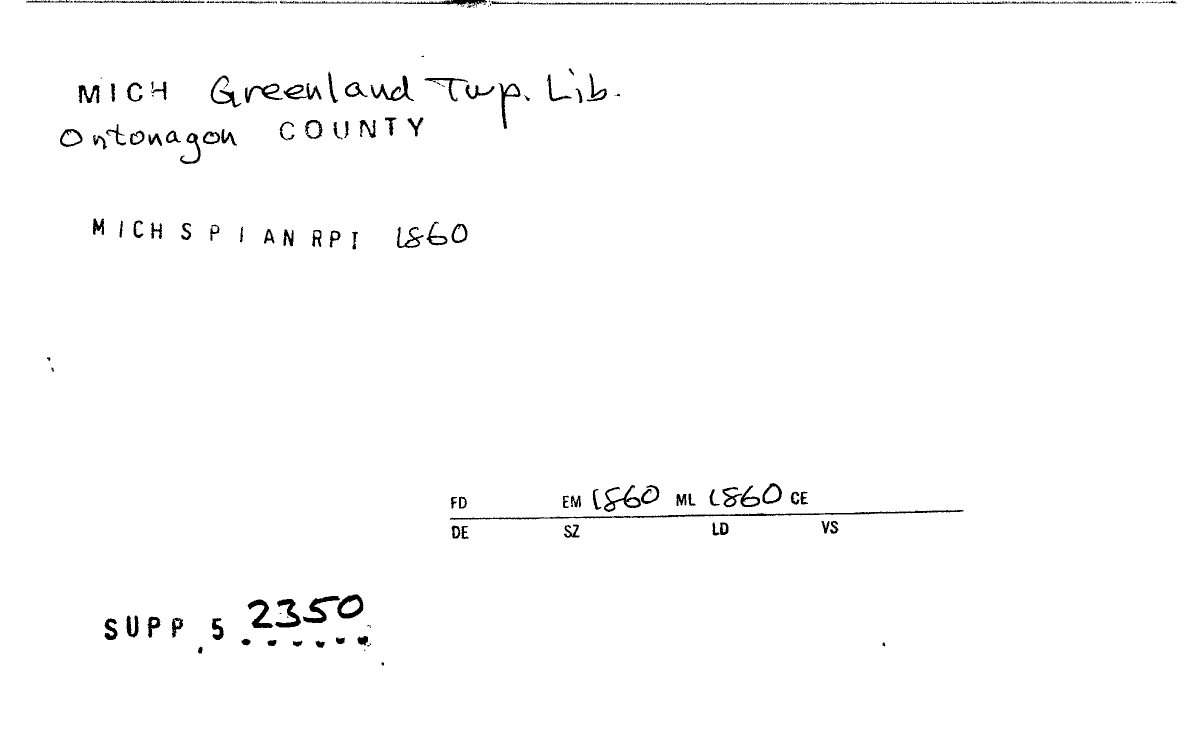 MICH Greenland Twp. Lib.
Ontonagon COUNTY
MICH S P I AN RPT 1860
FD EM 1860 ML 1860 CE
DE SZ LD VS
SUPP 5 2350